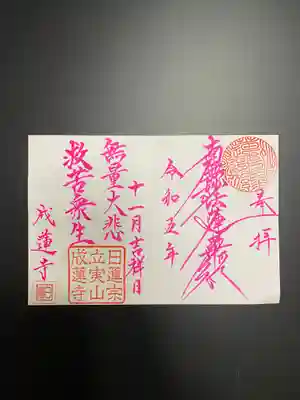 奉拝
南無妙法蓮華経
令和五年
十一月吉祥日
無量大悲
救苦衆生
成蓮寺
日蓮宗
立実山
成蓮寺